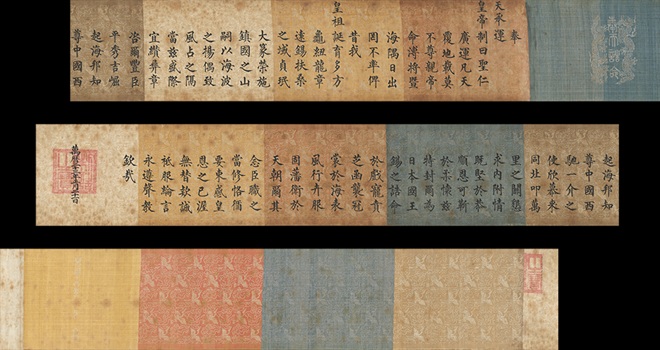 奉
天承運
皇帝制曰聖仁
廣運凡天
覆地載莫
不尊親帝
命溥將暨
海隅日出
罔不率俾
昔我
皇祖誕育多方
龜紐龍章
遠錫扶桑
之域貞珉
大篆榮施
鎮國之山
嗣以海波
之揚偶致
風占之隔
當茲盛際
宜纘彝章
咨爾豐臣
平秀吉崛
起海邦知
尊中國西
起海邦知
尊中國西
馳一介之
使欣慕來
同北叩萬
里之關懇
求內附情
既堅於恭
順恩可靳
於柔懷茲
特封爾為
日本國王
錫之誥命
於戲寵賁
芝函襲冠
裳於海表
風行卉服
固藩衛於
天朝爾其
念臣職之
當修恪循
要束感皇
恩之已渥
無替款誠
祗服綸言
永遵聲教
欽哉
萬曆二十三年正月二十一日